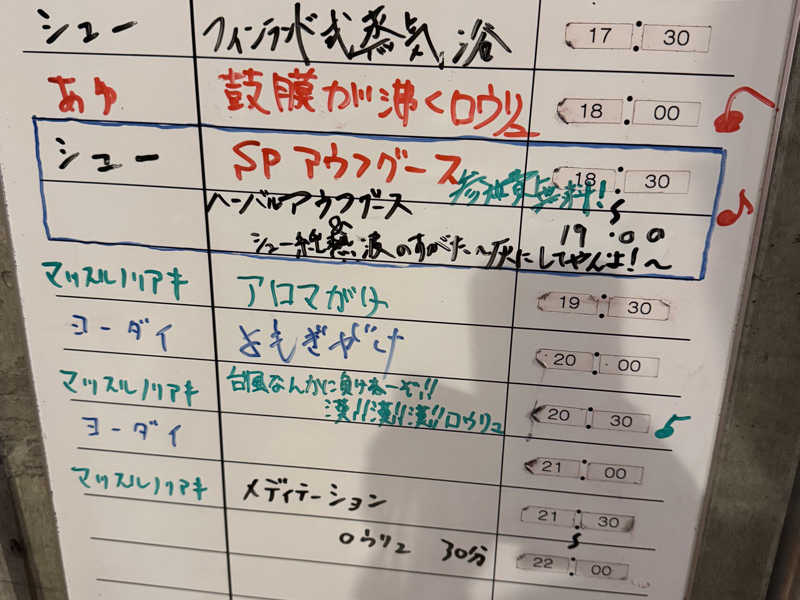 シュー フィンランド式蒸気浴 17:30
あゆ 鼓膜が沸くロウリュ 18:00
シュー SPアウフグース 18:30
参加費無料!
ハーバルアウフグース
&
シュー 熱波のすがた〜灰にしてやんよ!〜 19:00
マッスルノリアキ アロマがけ 19:30
ヨーダイ よもぎがけ 20:00
マッスルノリアキ 台風なんかに負けねーぞ!! 20:30
漢!!漢!!漢!!ロウリュ
ヨーダイ 21:00
マッスルノリアキ メディテーション 21:30
ロウリュ 30分 22:00